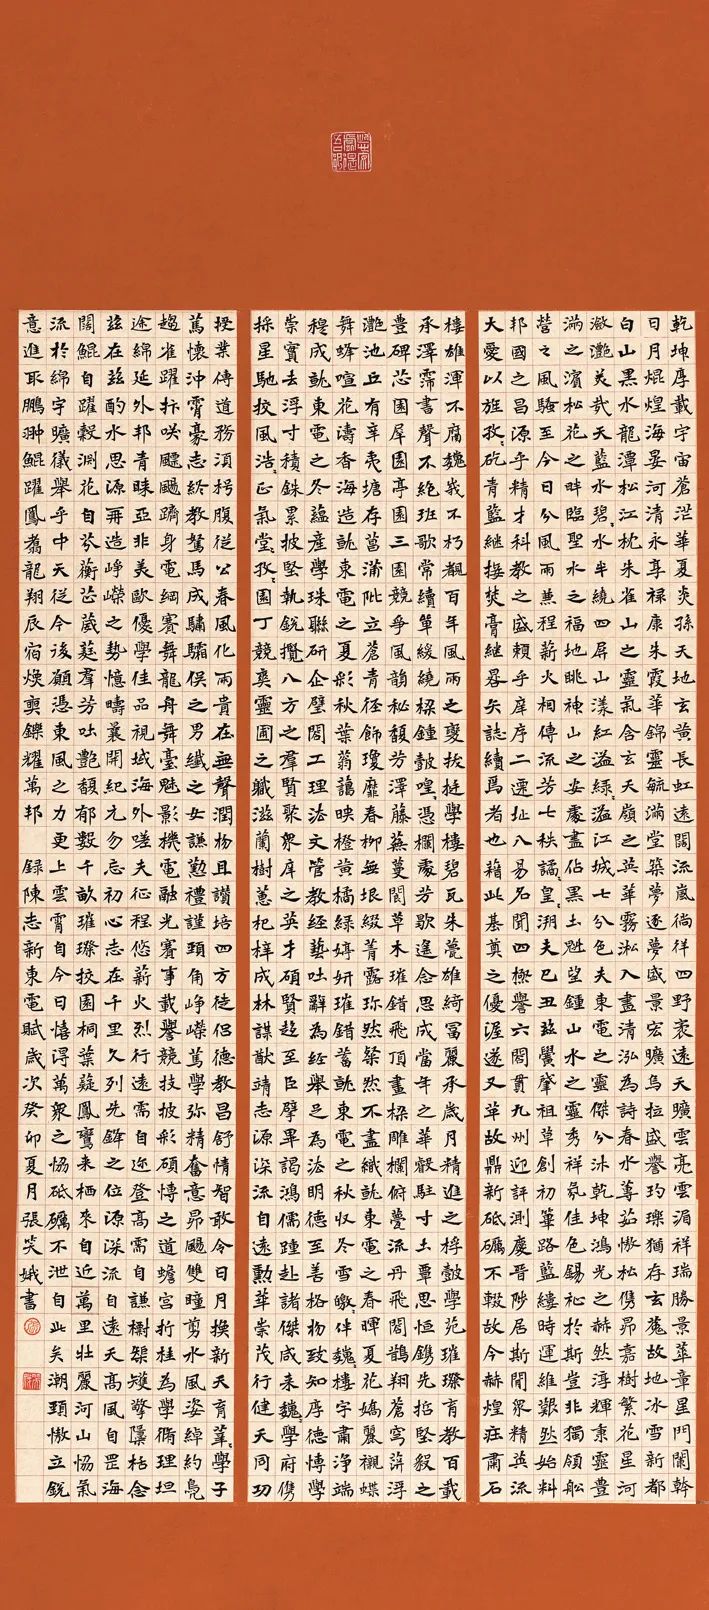 乾坤厚載宇宙蒼茫華夏炎孫天地玄黃長虹遠闊流嵐徜徉四野袤遠天曠雲亮雲湄祥瑞勝景華章星門闌幹
日月焜煌海晏河清永享祿康朱霞華錦靈毓滿堂築夢逐夢盛景宏曠烏拉盛譽玓瓅猶存玄菟故地冰雪新都
白山黑水龍潭松江枕朱雀山之靈氣含玄天嶺之英華霧淞入畫清泓為詩春水蓴茹憿松雋昂嘉樹繁花星河
瀲灔美哉天藍水碧水半繞四屏山漾紅溢綠溢江城七分色夫東電之靈傑兮沐乾坤鴻光之赫然淳輝秉靈豊
滿之濱松花之畔臨聖水之福地眺神山之安處盡佔黑土魁望鍾山水之靈秀祥氛佳色錫祉於斯豈非獨領舩
營之風騷至今日兮風雨兼程薪火相傳流芳七秩譎皇溯夫巳丑茲黌肇祖草創初篳路藍縷時運維艱然始料
邦國之昌源乎精才科教之盛賴乎庠序二遷址八易名聞四極譽六關貫九州迎評測慶晉陟居斯閒眾精英流
大愛以旌孜矻青藍繼揆焚膏繼晷矢誌續焉者也籍此基奠之優渥遂又革故鼎新砥礪不輟故今赫煌庄肅石
樓雄渾不腐魏峩不朽覩百年風雨之變拔挺學樓碧瓦朱甍雄綺冨麗承歲月精進之桴鼓學苑璀璨育教百載
承澤霈書聲不絕班歌常續單緩繞梁鍾鼓喤憑欄處芳歇遙念思成當年之華轂駐寸土覃思恒鐫先哲堅毅之
豊碑芯園犀園亭園三園競爭風韻秘馥芳澤藤蕪蔓閣草木璀錯飛頂畫梁雕欄俯甍流丹飛閣鵲翔蒼穹萍浮
灔池丘有辛夷塘存菖蒲阰立蒼青径飾瓊靡春柳無垠綴菁露珎然粲然不盡織就東電之春暉夏花嫣麗襯蝶
舞蜂喧花濤香海造就東電之夏彩秋葉蓊藹映橙黃橘綠婷妍璀錯蓄就東電之秋收冬雪皦伴巍樓宇肅浄端
穆成就東電之冬蘊產學珠聯研企璧閤工理法文管教經藝吐辭為經舉足為法明德至善格物致知厚德博學
崇實去浮寸積銖累披堅執銳攬八方之羣賢聚衆庠之英才碩賢趍至臣擘畢謁鴻儒踵赴諸傑咸来巍學府雋
採星馳挍風浩正氣堂孜園丁競奭靈圃之職滋蘭樹蕙杞梓成林謀猷靖志源深流自遠勲華崇茂行健天同功
授業傳道務須枵腹從公春風化雨貴在無聲潤物且讚培四方徒侶德教昌舒情智敢令日月換新天育華學子
篤懷沖霄豪志終教駑馬成驌驦俁之男纖之女謙懃禮謹頸角崢嶸篤學弥精奮意昴颺雙瞳剪水風姿綽約鳧
趨雀躍抃咲飃颺躋身電綱賽舞龍舟舞臺魅影機電融光賽事載譽競技披彩碩博之道蟾宮折桂為學脩理坦
途綿延外邦青睐亞非美歐優學佳品視域海外嗟夫征程悠薪火烈行遠需自迩登高需自謙榭槃矱擎檃栝念
茲在茲酌水思源再造崢嶸之勢憶曩開紀元勿忘初心志在千里久列先鋒之位源深流自遠天高風自罡海
闊鯤自躍穀渊花自芩蘅芯葳莛羣芳吐艷馥郁數千畝璀璨挍園桐葉蕤鳳鸞来栖来自近萬里壯麗河山恊氣
流於綿宇曠儀舉乎中天従今後願憑東風之力更上雲霄自今日憘得萬衆之恊砥礪不泄自此矣潮頭憿立銳
意進取鵬翀鯤躍鳳翥龍翔辰宿煐奭鑠耀萬邦 録陳志新東電賦歲次癸卯夏月張笑娥書